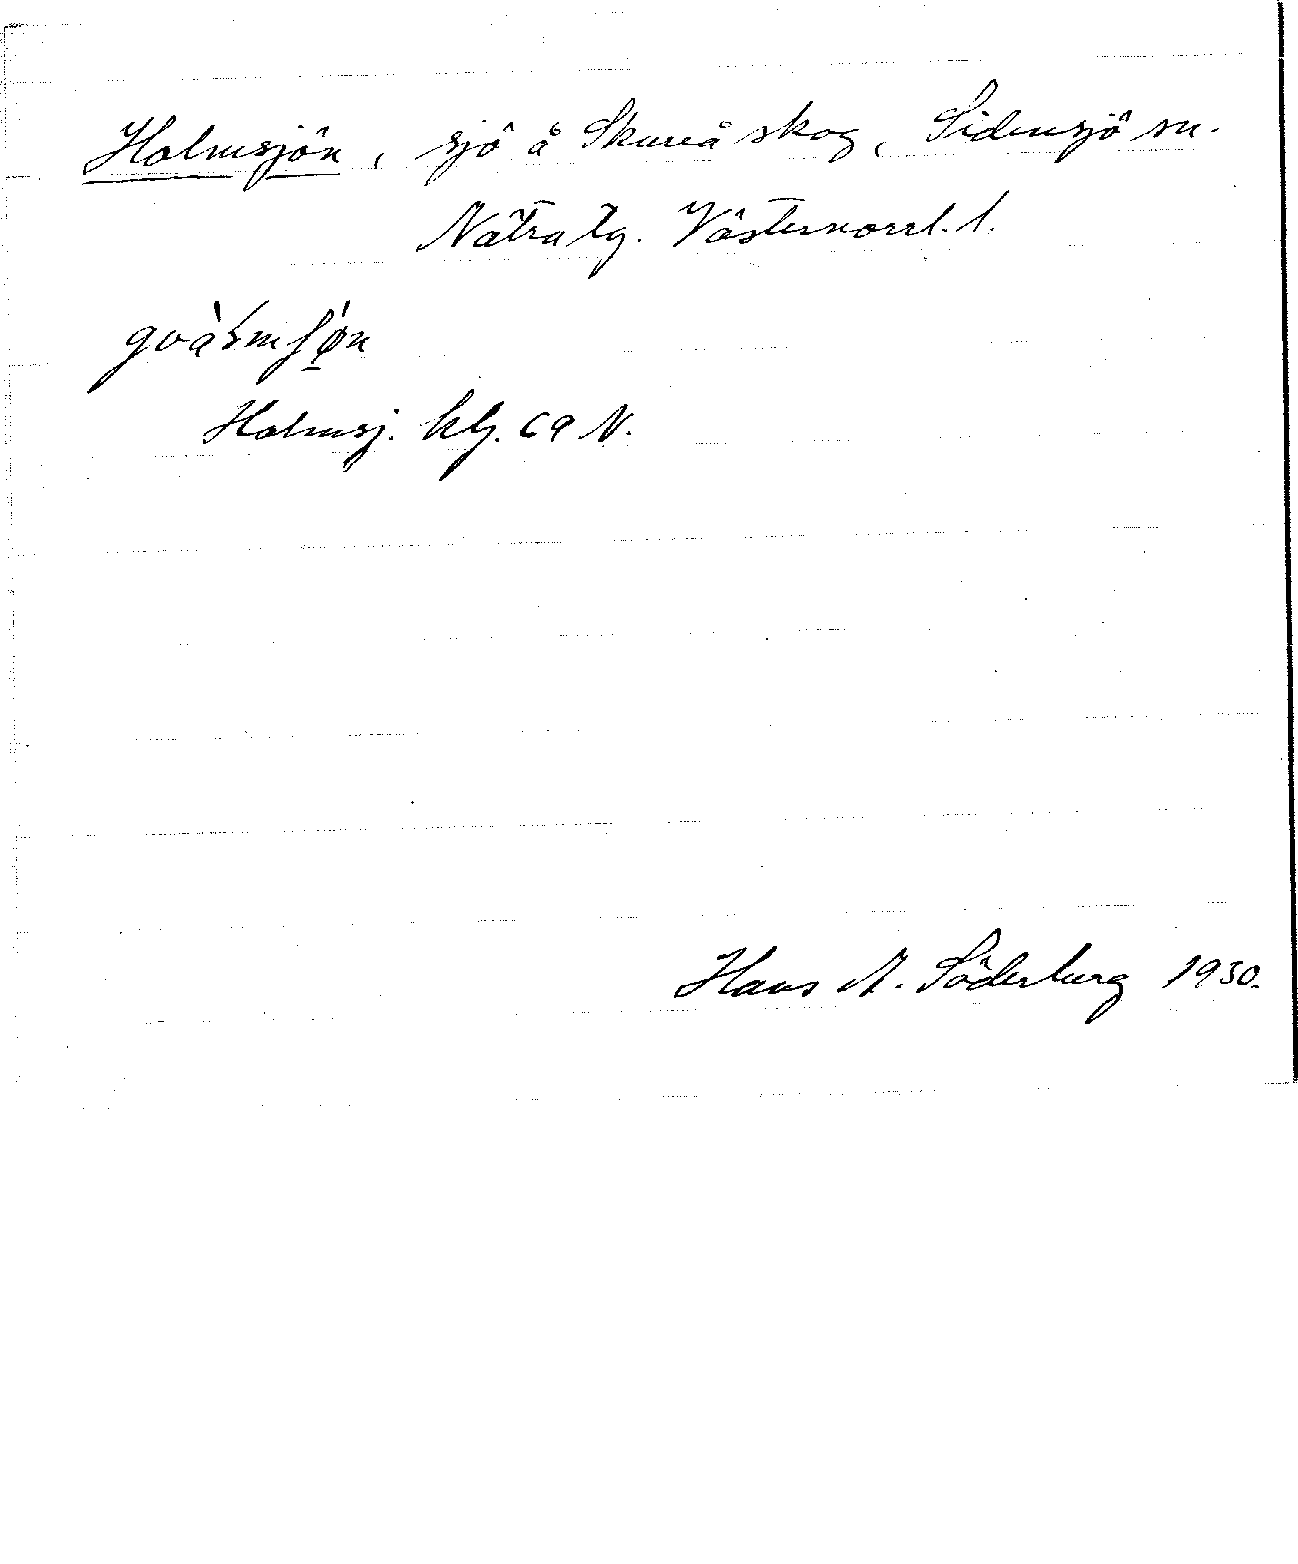 Holmsjön, sjö å Skureå skog, Sidensjö sn.
Nätra tg. Västernorrl. l.
Holmsj. kbl. 69 N.
Hans A. Söderberg 1930.